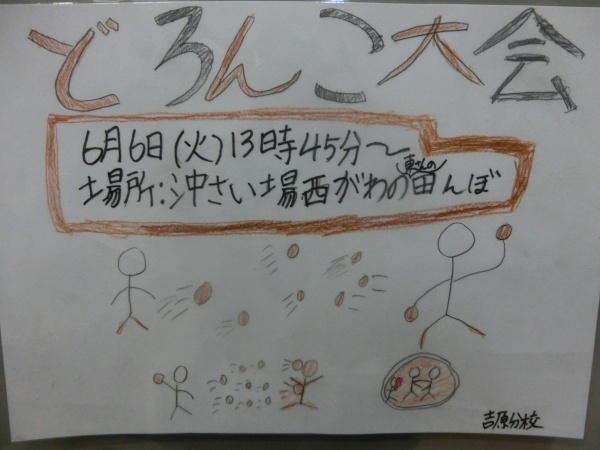 どろんこ大会
6月6日(火)13時45分〜
場所:沖さい場西がわの東さんの田んぼ
吉原分校